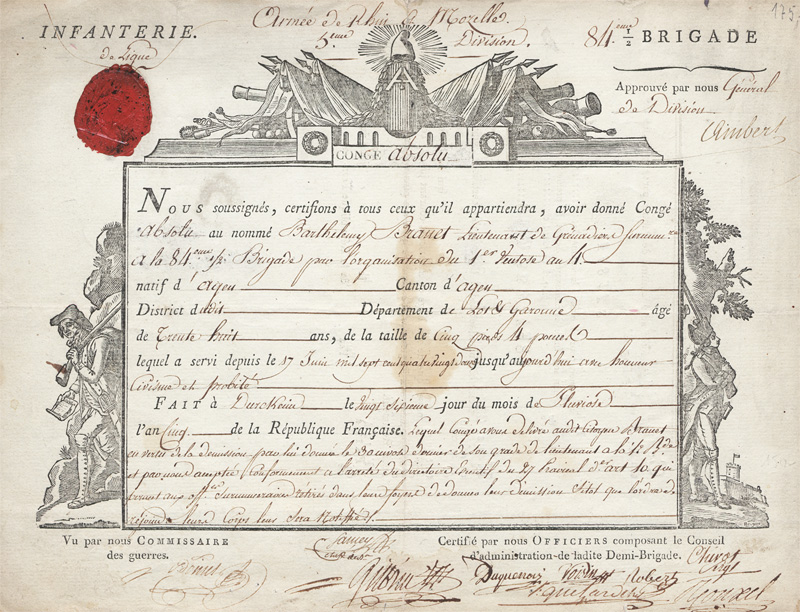 175,
Armée de Rhin et Mozelle.
INFANTERIE. 5.eme Division. 84.eme 1/2 BRIGADE
de Ligne
Approuvé par nous Général
de Division
Ambert
CONGÉ absolu
Nous soussignés, certifions à tous ceux qu'il appartiendra, avoir donné Congé
absolu au nommé Barthelemy Brauet Lieutenant de Grenadiers surnum.re
a la 84eme 1/2 Brigade par l'organisation du 1er Ventose an 4
natif d'agen Canton d'agen
District dudit Département de Lot et Garonne âgé
de Trente huit ans, de la taille de Cinq pieds 4 pouces
lequel a servi depuis le 17 Juin mil sept cent quatre vingt jusqu'aujourd'hui avec honneur
civisme et probité
FAIT à Durckeim le vingt septieme jour du mois de Pluviose
l'an Cinq de la République Française. Lequel Congé avons délivré audit Citoyen Brauet
en vertu de la demission par lui donnée le 30 nivose dernier de son grade de lieutenant a la 1/2 B.de
et par nous acceptée conformement a l'arreté du directoire Executif du prairial d.er art 10 qui
aux off.ers surnumeraires retirés dans leurs foyers de donner leur démission sitot que l'ordre de
rejoindre leurs Corps leur sera Notiffié
Vu par nous COMMISSAIRE
des guerres.
Certifié par nous OFFICIERS composant le Conseil
d'administration de ladite Demi-Brigade.
Duquenoy Robert